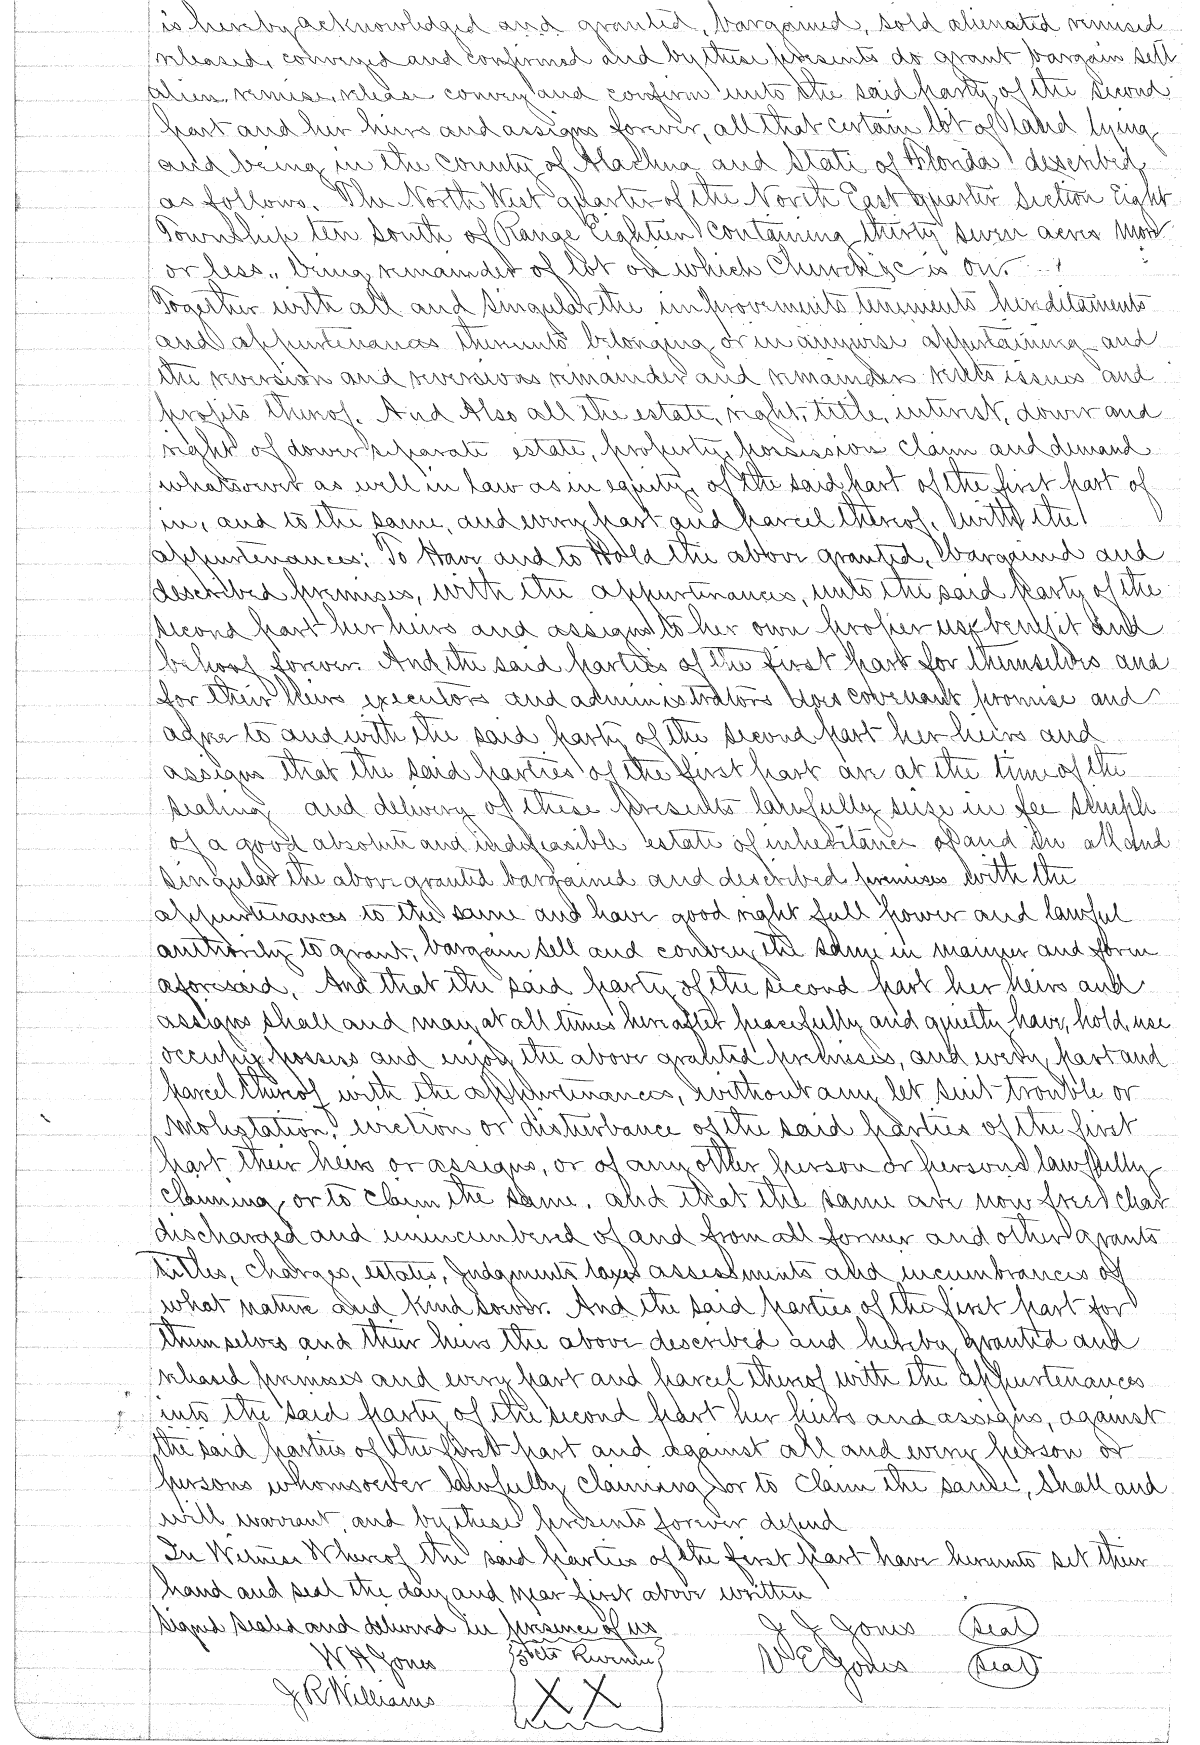 is hereby acknowledged and granted, bargained, sold alienated remised
released, conveyed and confirmed and by these presents do grant bargain sell
alien, remise, release convey and confirm unto the said party of the second
part and her heirs and assigns forever, all that certain lot of land lying
and being in the County of Alachua and State of Florida described
as follows. The North West quarter of the North East quarter Section Eight
Township ten South of Range Eighteen containing thirty seven acres more
or less, being remainder of lot on which Church &c is on.
Together with all and singular the improvements tenements hereditaments
and appurtenances thereunto belonging or in anywise appertaining and
the reversion and reversions remainder and remainders rents issues and
profits thereof. And Also all the estate, right, title, interest, dower and
right of dower separate estate, property, possession claim and demand
whatsoever as well in law as in equity, of the said part of the first part of
in, and to the same, and every part and parcel thereof, with the
appurtenances: To Have and to Hold the above granted, bargained and
described premises, with the appurtenances, unto the said party of the
second part her heirs and assigns to her own proper use benefit and
behoof forever. And the said parties of the first part for themselves and
for their heirs executors and administrators does covenant promise and
agree to and with the said party of the second part her heirs and
assigns that the said parties of the first part are at the time of the
sealing and delivery of these presents lawfully seize in fee simple
of a good absolute and indefeasible estate of inheritance of and in all and
singular the above granted bargained and described premises with the
appurtenances to the same and have good right full power and lawful
authority to grant, bargain sell and convey the same in manner and form
aforesaid. And that the said party of the second part her heirs and
assigns shall and may at all times hereafter peacefully and quietly have, hold, use
occupy possess and enjoy the above granted premises, and every part and
parcel thereof with the appurtenances, without any let suit trouble or
molestation, eviction or disturbance of the said parties of the first
part their heirs or assigns, or of any other person or persons lawfully
claiming or to claim the same. and that the same are now free clear
discharged and unincumbered of and from all former and other grants
titles, charges, estates, Judgments taxes assessments and incumbrances of
what nature and kind soever. And the said parties of the first part for
themselves and their heirs the above described and hereby granted and
released premises and every part and parcel thereof with the appurtenances
into the said party of the second part her heirs and assigns, against
the said parties of the first part and against all and every person or
persons whomsoever lawfully claiming or to claim the same, shall and
will warrant, and by these presents forever defend
In Witness Whereof the said parties of the first part have hereunto set their
hand and seal the day and year first above written
Signed Sealed and delivered in presence of us J J Jones Seal
W H Jones cts Revenue W E Jones Seal
J R Williams X X